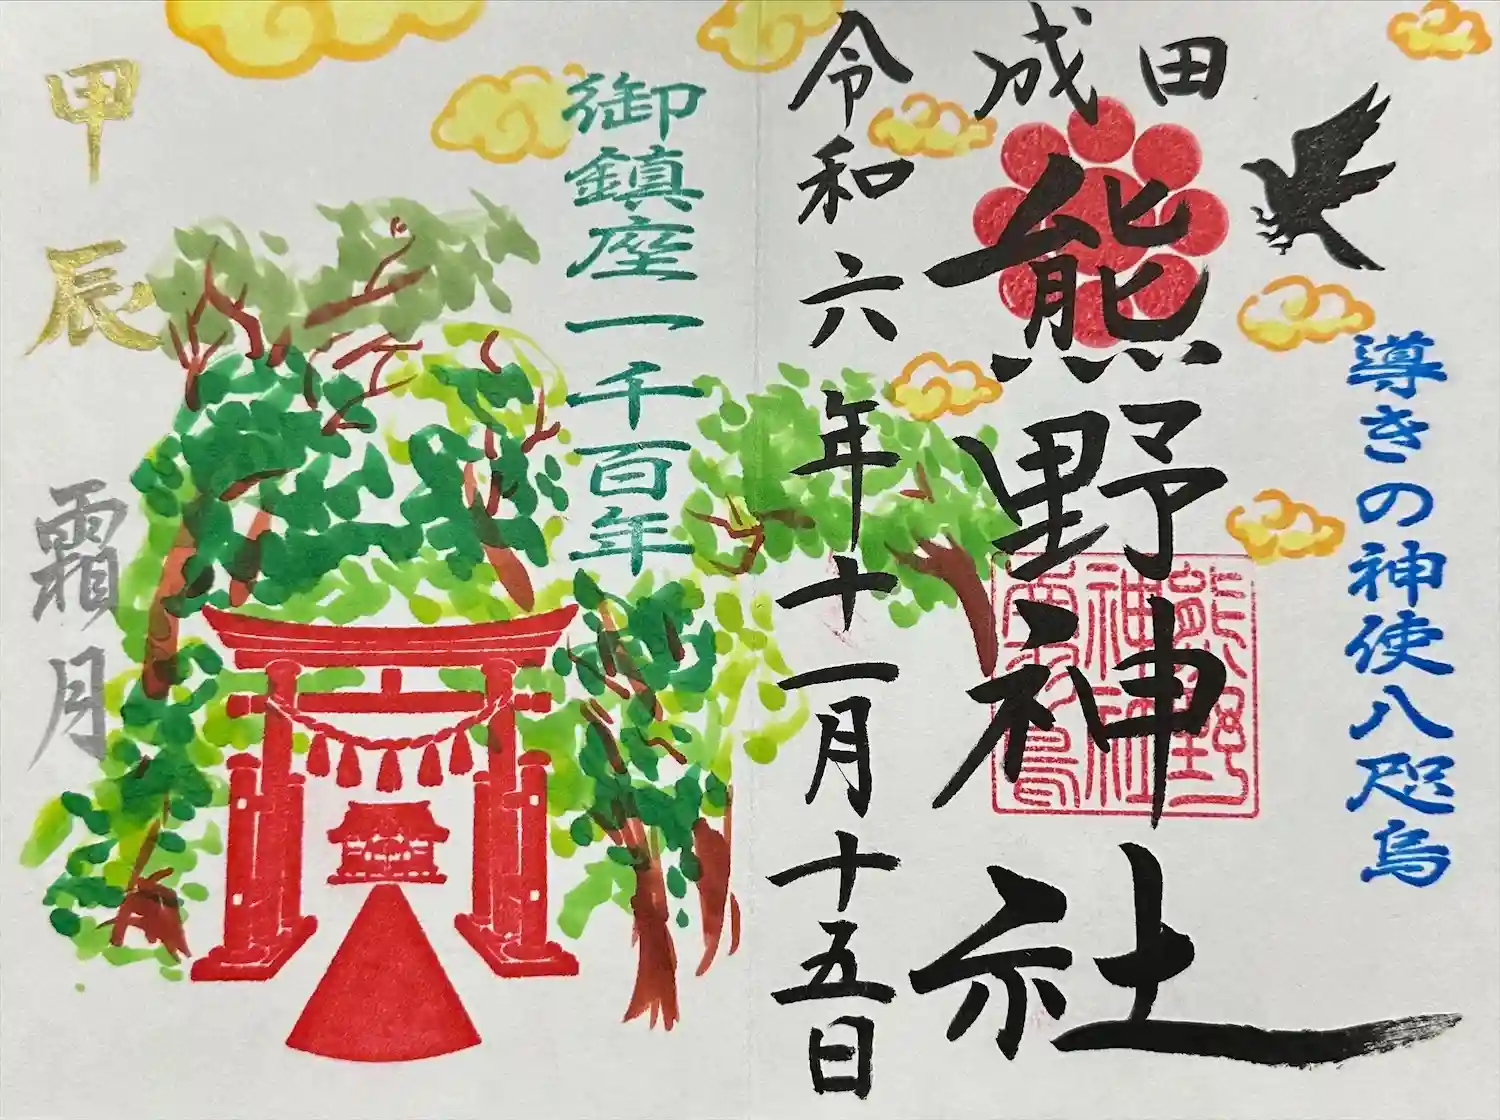 導きの神使八咫烏
田成
熊野神社
令和六年十一月十五日
御鎮座一千百年
甲辰
霜月